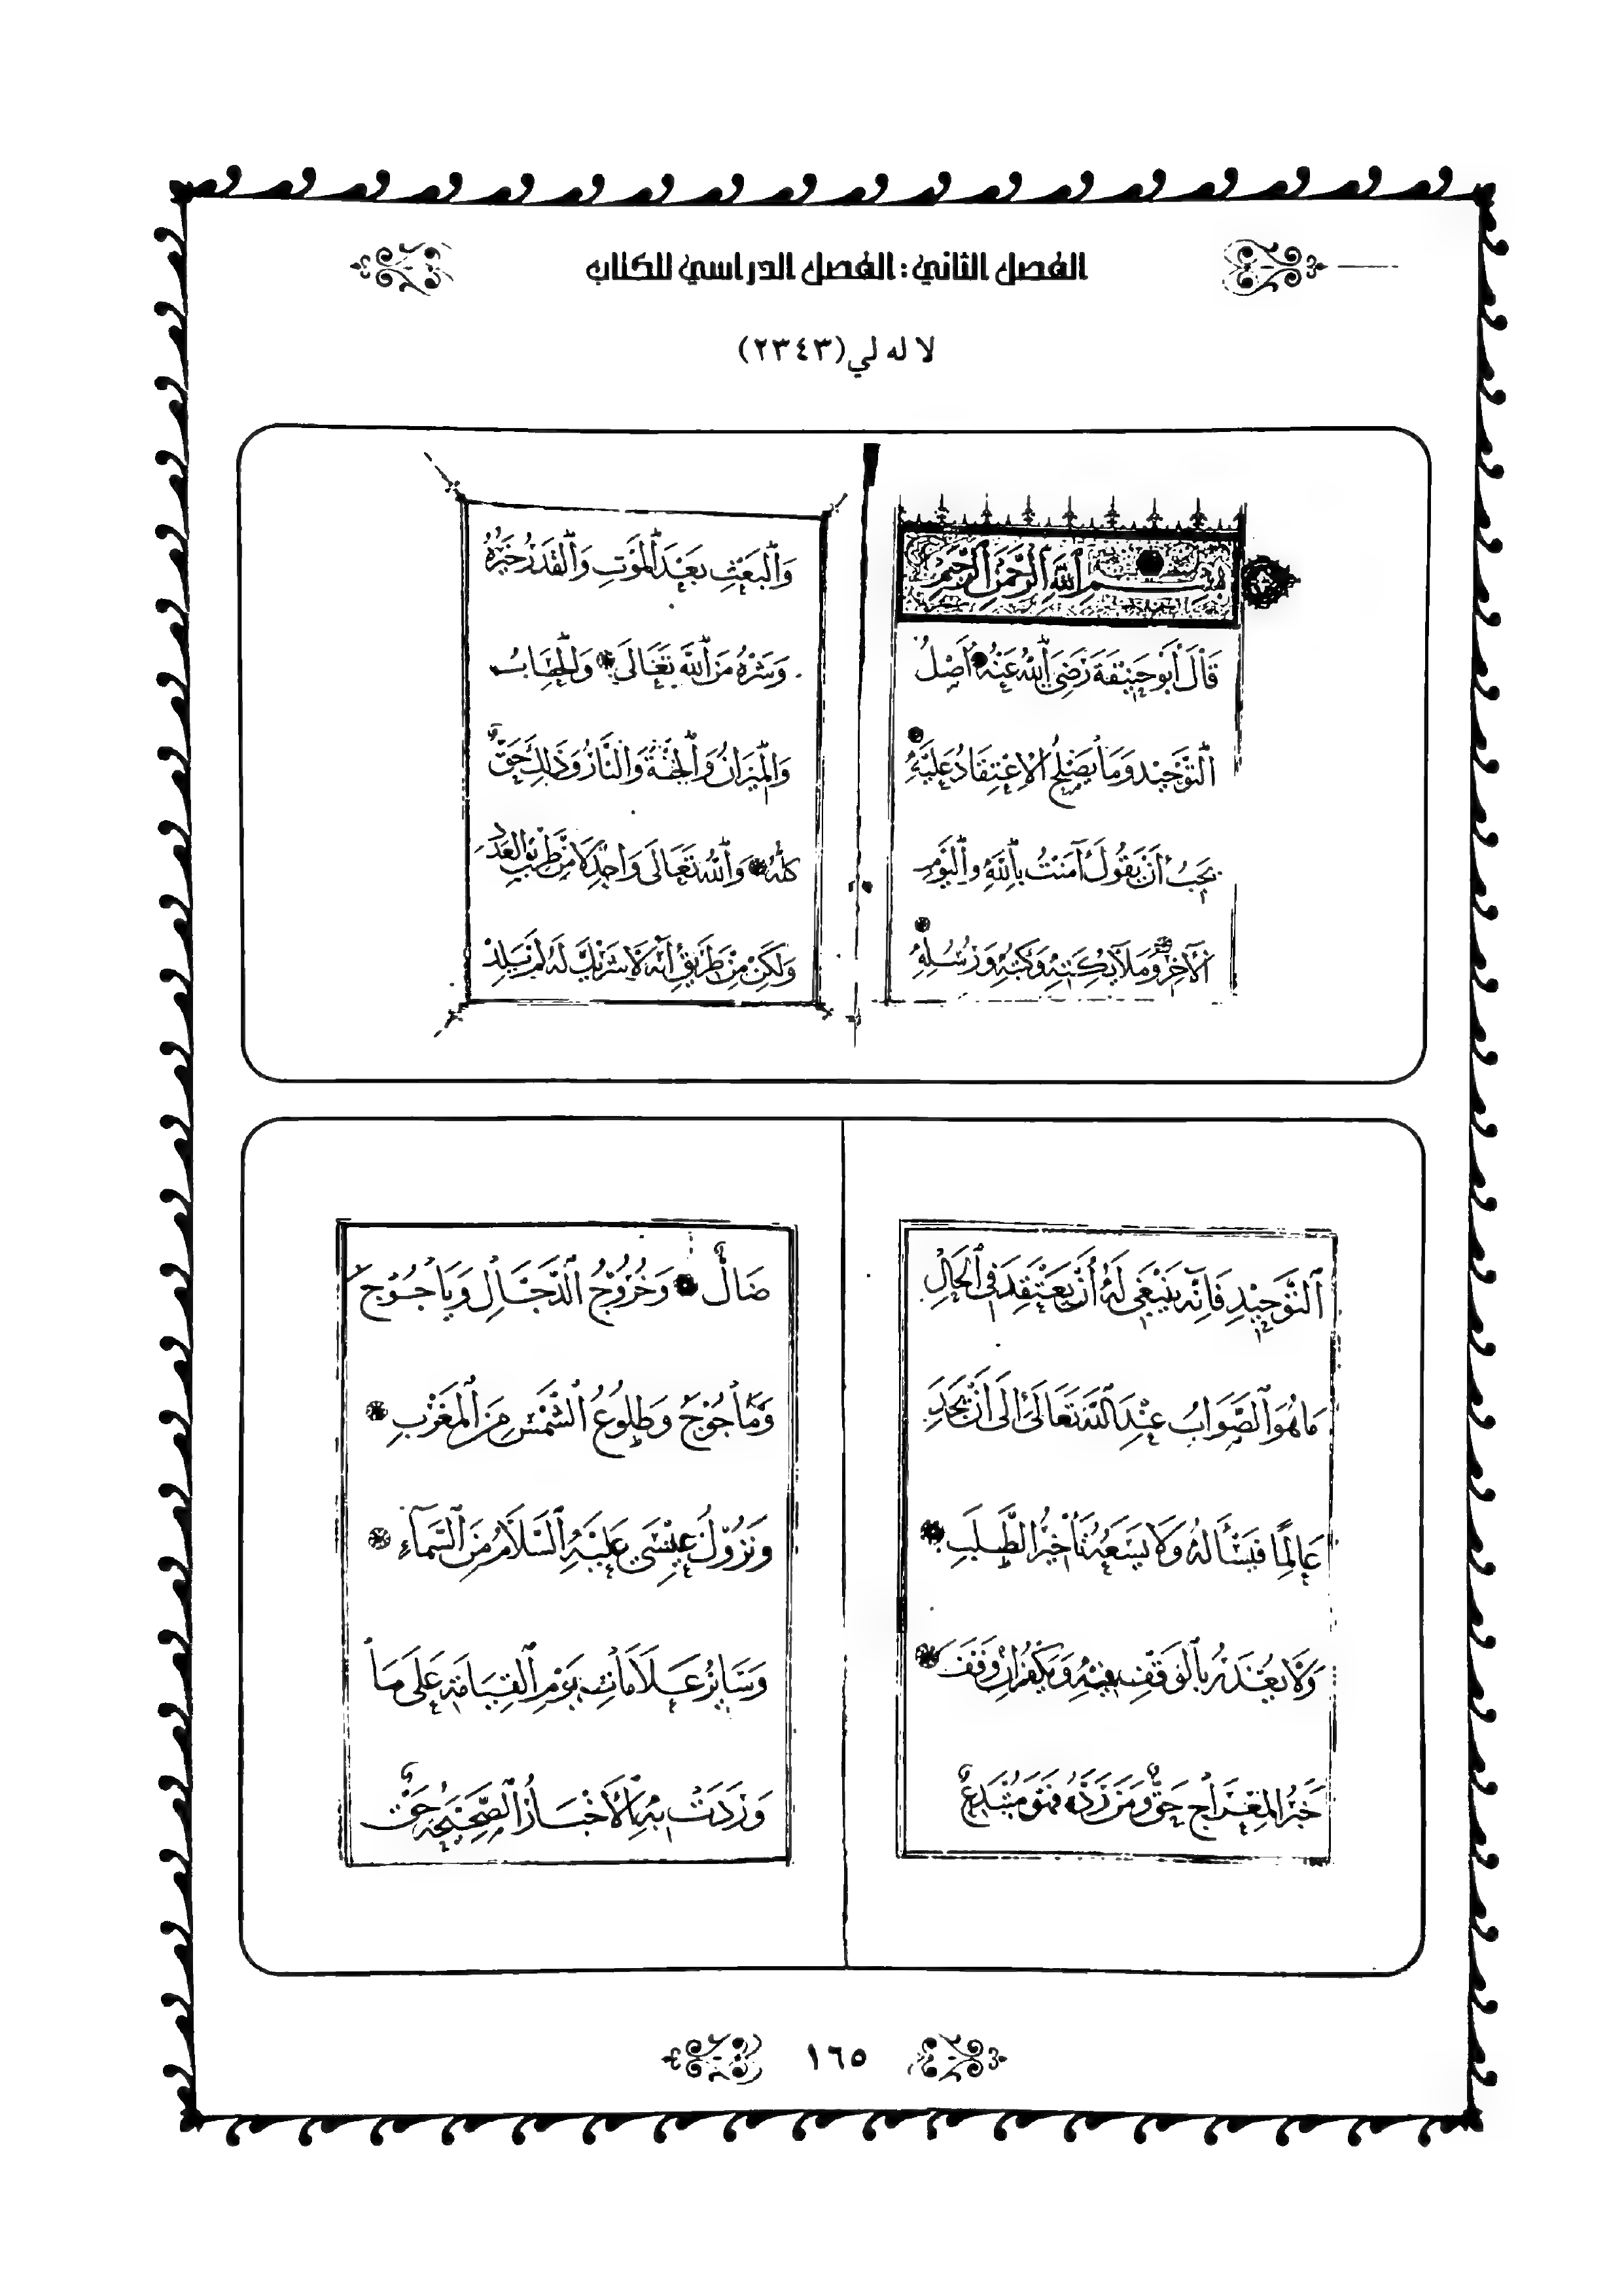 الفصل الثاني: الفصل الدراسي للكتاب
لا له لي (٢٣٤٣)
بِسْمِ اللَّهِ الرَّحْمَنِ الرَّحِيمِ
قَالَ أَبُو حَنِيفَةَ رَضِيَ اللَّهُ عَنْهُ أَصْلُ
التَّوْحِيدِ وَمَا يَصْلُحُ الِاعْتِقَادُ عَلَيْهِ
يَجِبُ أَنْ يَقُولَ آمَنْتُ بِاللَّهِ وَالْيَوْمِ
الْآخِرِ وَمَلَائِكَتِهِ وَكُتُبِهِ وَرُسُلِهِ
وَالْبَعْثِ بَعْدَ الْمَوْتِ وَالْقَدَرِ خَيْرِهِ
وَشَرِّهِ مِنَ اللَّهِ تَعَالَى وَالْحِسَابُ
وَالْمِيزَانُ وَالْجَنَّةُ وَالنَّارُ وَذَلِكَ حَقٌّ
كُلُّهُ وَاللَّهُ تَعَالَى وَاحِدٌ لَا مِنْ طَرِيقِ الْعَدَدِ
وَلَكِنْ مِنْ طَرِيقِ أَنَّهُ لَا شَرِيكَ لَهُ لَمْ يَلِدْ
التَّوْحِيدِ فَإِنَّهُ يَنْبَغِي لَهُ أَنْ يَعْتَقِدَ فِي الْحَالِ
مَا هُوَ الصَّوَابُ عِنْدَ اللَّهِ تَعَالَى إِلَى أَنْ يَجِدَ
عَالِمًا فَيَسْأَلَهُ وَلَا يَسَعُهُ تَأْخِيرُ الطَّلَبِ
وَلَا يُعْذَرُ بِالْوَقْفِ فِيهِ وَيَكْفُرُ إِنْ وَقَفَ
خَبَرُ الْمِعْرَاجِ حَقٌّ وَمَنْ رَدَّهُ فَهُوَ مُبْتَدِعٌ
ضَالٌّ وَخُرُوجُ الدَّجَّالِ وَيَأْجُوجَ
وَمَأْجُوجَ وَطُلُوعُ الشَّمْسِ مِنَ الْمَغْرِبِ
وَنُزُولُ عِيسَى عَلَيْهِ السَّلَامُ مِنَ السَّمَاءِ
وَسَايِرُ عَلَامَاتِ يَوْمِ الْقِيَامَةِ عَلَى مَا
وَرَدَتْ بِهِ الْأَخْبَارُ الصَّحِيحَةُ حَقٌّ
١٦٥